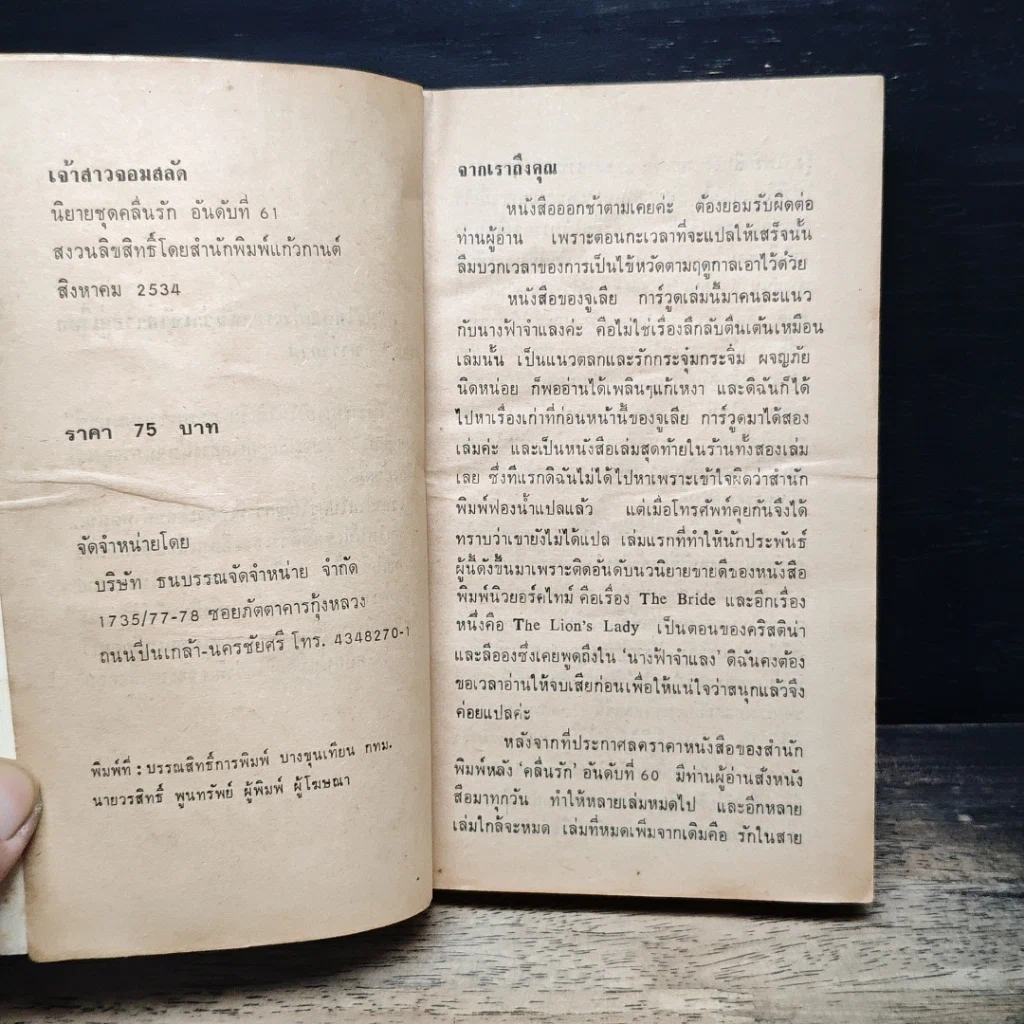 เจ้าสาวจอมสลัด
นิยายชุดคลื่นรัก อันดับที่ 61
สงวนลิขสิทธิ์โดยสำนักพิมพ์แก้วกานต์
สิงหาคม 2534
ราคา 75 บาท
จัดจำหน่ายโดย
บริษัท ธนบรรณจัดจำหน่าย จำกัด
1735/77-78 ซอยภัตตาคารกุ้งหลวง
ถนนปิ่นเกล้า-นครชัยศรี โทร. 4348270-1
พิมพ์ที่ : บรรณสิทธิ์การพิมพ์ บางขุนเทียน กทม.
นายวรสิทธิ์ พูนทรัพย์ ผู้พิมพ์ ผู้โฆษณา
จากเราถึงคุณ
หนังสือออกช้าตามเคยค่ะ ต้องยอมรับผิดต่อ
ท่านผู้อ่าน เพราะตอนกะเวลาที่จะแปลให้เสร็จนั้น
ลืมบวกเวลาของการเป็นไข้หวัดตามฤดูกาลเอาไว้ด้วย
หนังสือของจูเลีย การ์วูดเล่มนี้มาคนละแนว
กับนางฟ้าจำแลงค่ะ คือไม่ใช่เรื่องลึกลับตื่นเต้นเหมือน
เล่มนั้น เป็นแนวตลกและรักกระจุ๋มกระจิ๋ม ผจญภัย
นิดหน่อย ก็พออ่านได้เพลินๆแก้เหงา และดิฉันก็ได้
ไปหาเรื่องเก่าที่ก่อนหน้านี้ของจูเลีย การ์วูดมาได้สอง
เล่มค่ะ และเป็นหนังสือเล่มสุดท้ายในร้านทั้งสองเล่ม
เลย ซึ่งทีแรกดิฉันไม่ได้ไปหาเพราะเข้าใจผิดว่าสำนัก
พิมพ์ฟองน้ำแปลแล้ว แต่เมื่อโทรศัพท์คุยกันจึงได้
ทราบว่าเขายังไม่ได้แปล เล่มแรกที่ทำให้นักประพันธ์
ผู้นี้ดังขึ้นมาเพราะติดอันดับนวนิยายขายดีของหนังสือ
พิมพ์นิวยอร์คไทม์ คือเรื่อง The Bride และอีกเรื่อง
หนึ่งคือ The Lion's Lady เป็นตอนของคริสติน่า
และลีอองซึ่งเคยพูดถึงใน 'นางฟ้าจำแลง' ดิฉันคงต้อง
ขอเวลาอ่านให้จบเสียก่อนเพื่อให้แน่ใจว่าสนุกแล้วจึง
ค่อยแปลค่ะ
หลังจากที่ประกาศลดราคาหนังสือของสำนัก
พิมพ์หลัง 'คลื่นรัก' อันดับที่ 60 มีท่านผู้อ่านสั่งหนัง
สือมาทุกวัน ทำให้หลายเล่มหมดไป และอีกหลาย
เล่มใกล้จะหมด เล่มที่หมดเพิ่มจากเดิมคือ รักในสาย